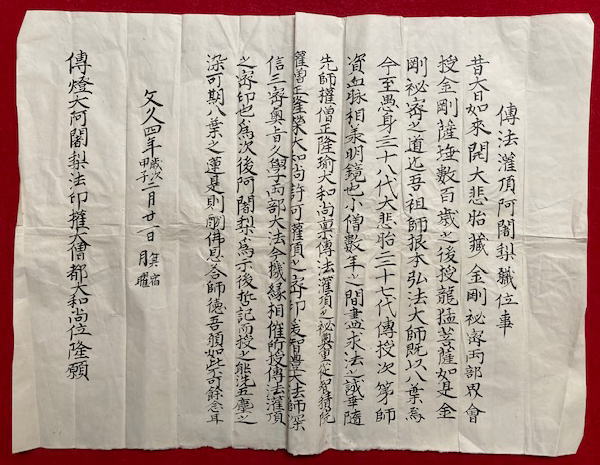 傳法灌頂阿闍梨職位事
昔大日如來開大悲胎藏金剛祕密兩部界會
授金剛薩埵數百歲之後授龍猛菩薩如是金
剛祕密之道迄吾祖師根本弘法大師既以八葉焉
今至愚身三十八代大悲胎三十七代傳授次第師
資血脉相羨明鏡也小僧數年之間盡求法之誠幸隨
先師權僧正隆瑜大和尚稟傳法灌頂之祕奧重從智積院
權僧正隆榮大和尚許可灌頂之密印爰智大法師深
信三密奧旨久學兩部大法今機緣相催所授傳法灌頂
之密印也為次後阿闍梨為示後哲記而授之能洗五塵之
染可期八葉之蓮是則酬佛恩答師德吾願如此不可餘念耳
文久四年歲次甲子二月廿一日月曜宿
傳燈大阿闍梨法印權大僧都大和尚位隆願